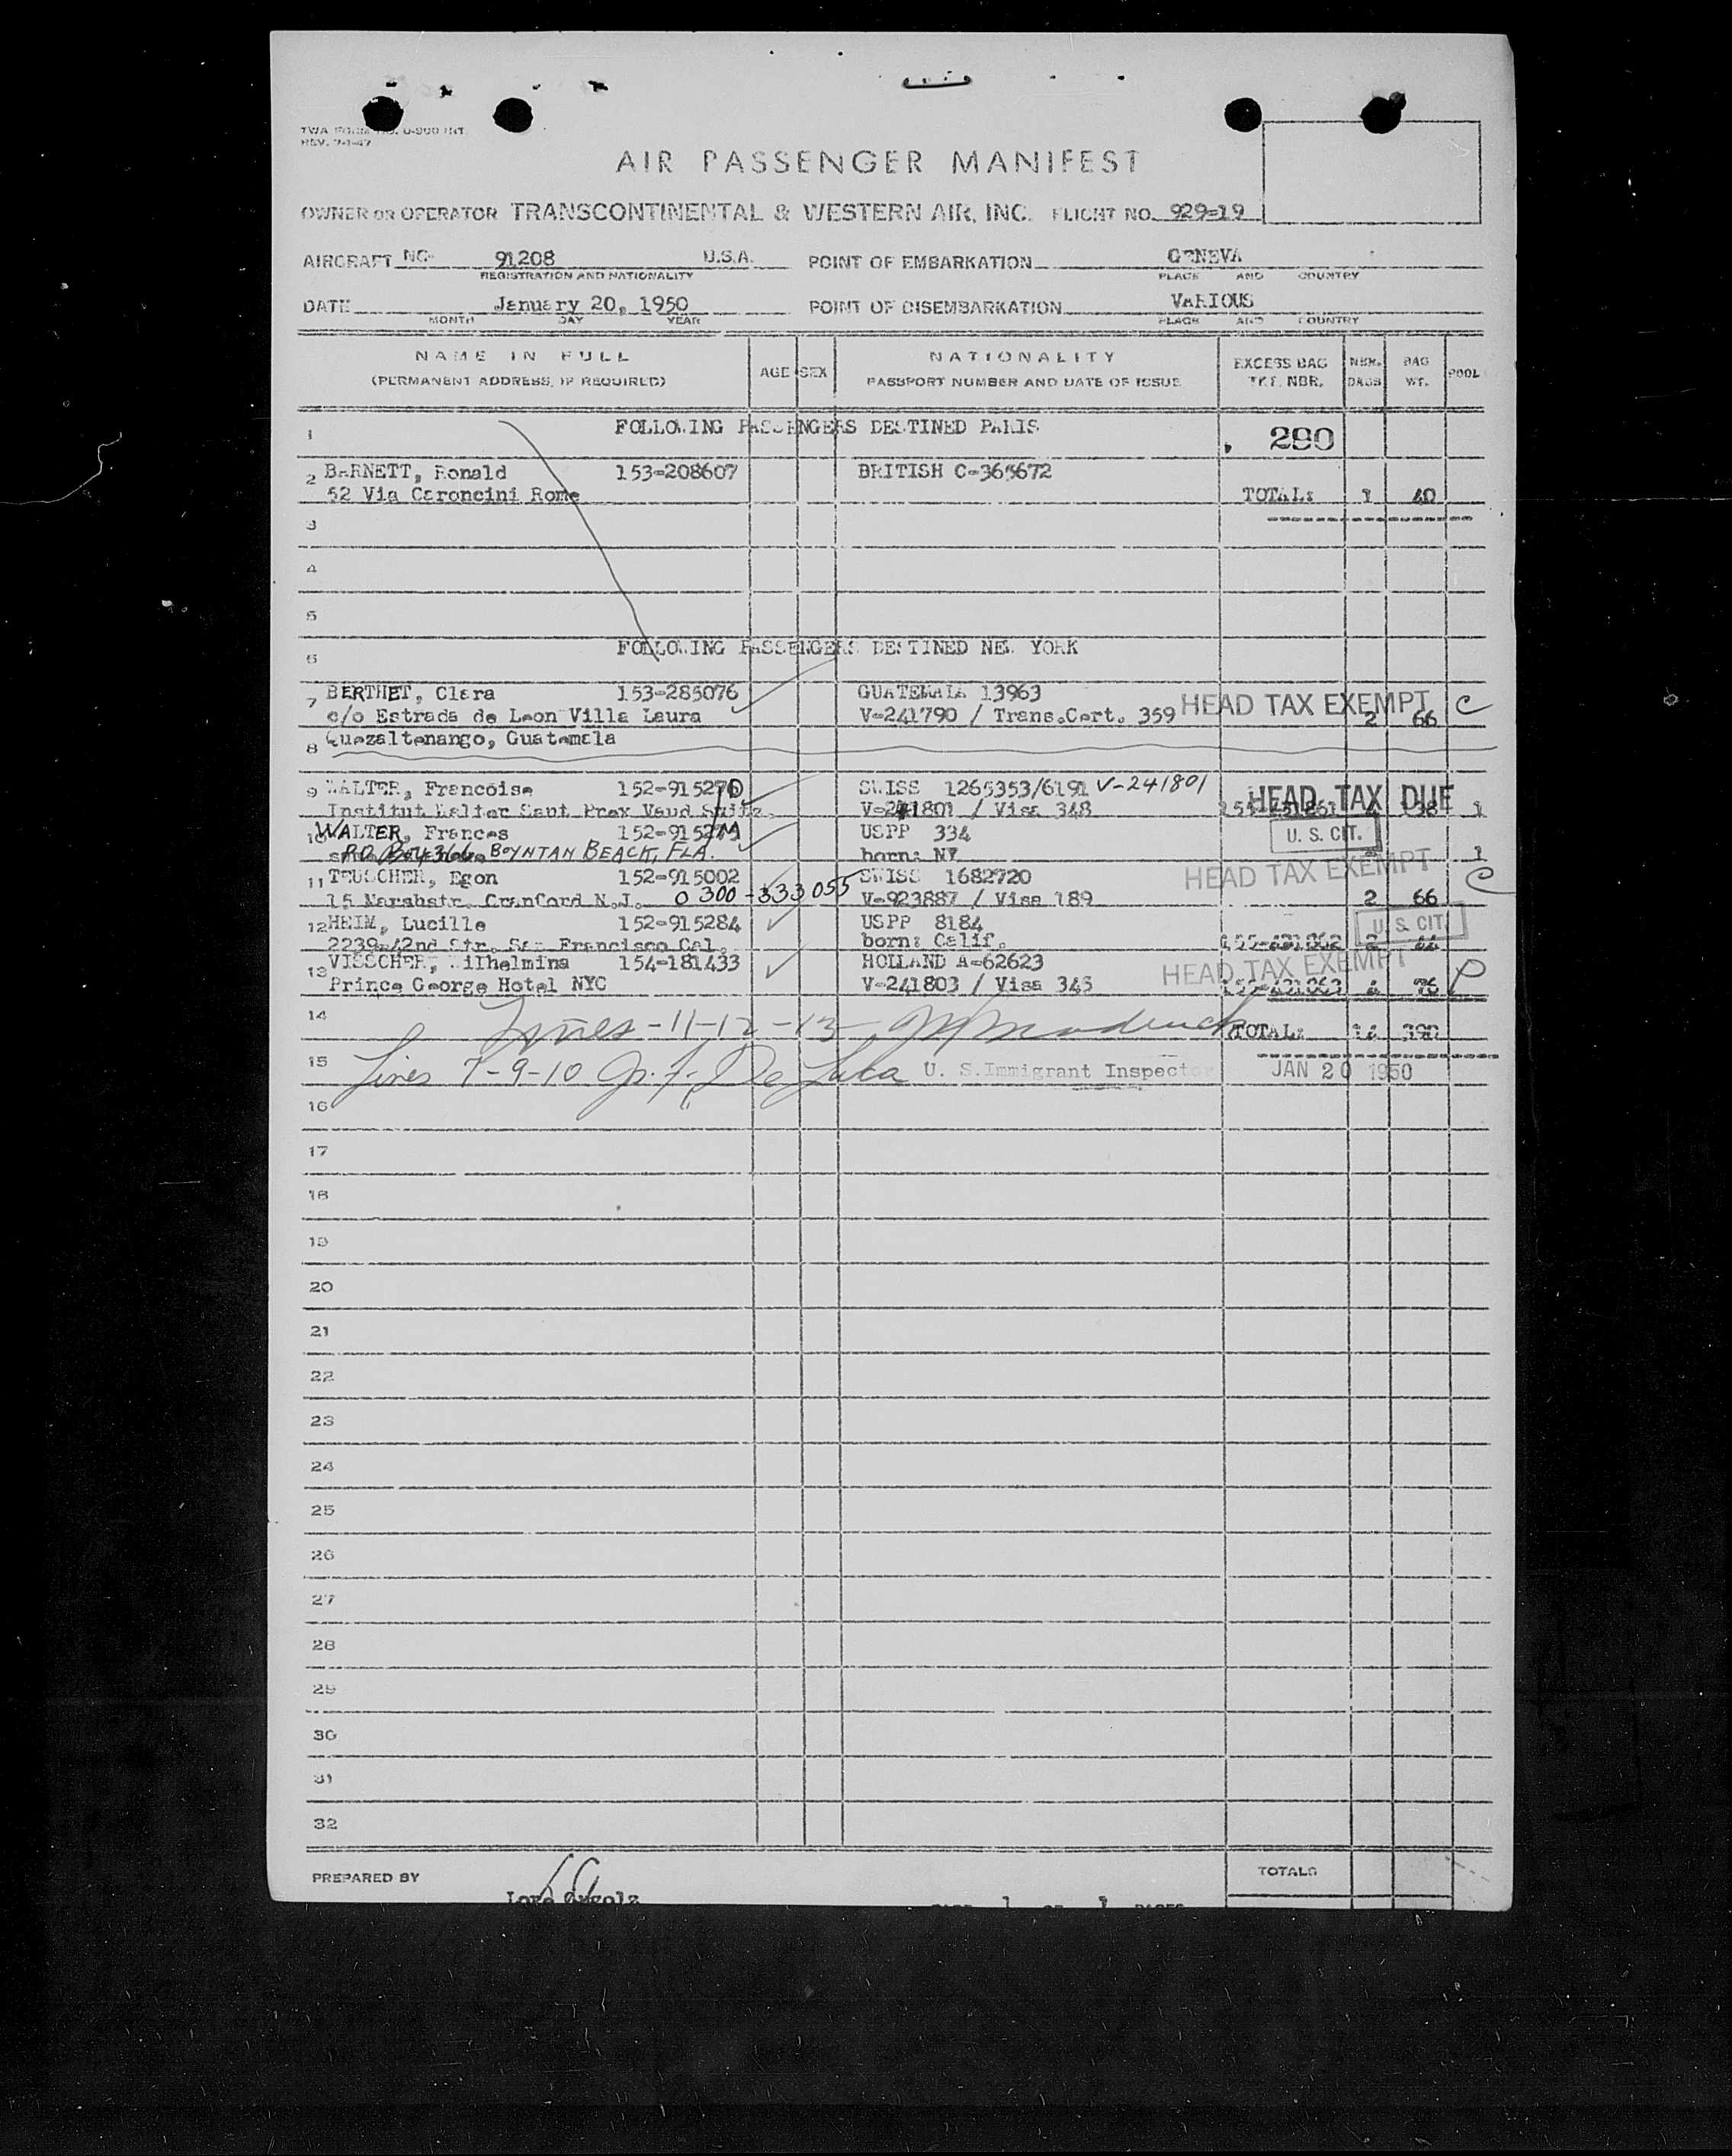 TWA FORM NO. O-900 INT.
REV. 7-1-47
AIR PASSENGER MANIFEST
OWNER OR OPERATOR TRANSCONTINENTAL & WESTERN AIR, INC. FLIGHT NO. 929-19
AIRCRAFT NC- 91208 U.S.A. POINT OF EMBARKATION GENEVA
REGISTRATION AND NATIONALITY PLACE AND COUNTRY
DATE January 20, 1950 POINT OF DISEMBARKATION VARIOUS
MONTH DAY YEAR PLACE AND COUNTRY
NAME IN FULL AGE SEX NATIONALITY EXCESS BAG NBR. BAG POOL
(PERMANENT ADDRESS, IF REQUIRED) PASSPORT NUMBER AND DATE OF ISSUE TKT. NBR. BAGS WT.
1 FOLLOWING PASSENGERS DESTINED PARIS 290
2 BARNETT, Ronald 153-208607 BRITISH C-365672
52 Via Caroncini Rome TOTAL: 1 40
3
4
5
6 FOLLOWING PASSENGERS DESTINED NEW YORK
7 BERTHET, Clara 153-285076 GUATEMALA 13963 HEAD TAX EXEMPT C
c/o Estrada de Leon Villa Laura V-241790 / Trans.Cert. 359 2 66
8 Quezaltenango, Guatemala
9 WALTER, Francoise 152-915270 SWISS 1265353/6191 V-241801 HEAD TAX DUE
Institut Walter Saut Prex Vaud Suitz. V-241801 / Visa 348 138 1
10 WALTER, Frances USPP 334 U. S. CIT.
P.O. Box 366 BOYNTAN BEACK, FLA. born: NY 1
11 TEUSCHER, Egon 152-915002 SWISS 1682720 HEAD TAX EXEMPT C
15 Marshstr. Cranford N.J. 0 300-333055 V-923887 / Visa 189 2 66
12 HEIM, Lucille 152-915284 USPP 8184 U. S. CIT.
2239-42nd Str. San Francisco Cal. born: Calif. 2 44
13 VISSCHER, Wilhelmina 154-181433 HOLLAND A-62623 HEAD TAX EXEMPT P
Prince George Hotel NYC V-241803 / Visa 345 4 76
14 Lines - 11-12-13 TOTAL: 14 390
15 Lines 7-9-10 De Luca U. S. Immigrant Inspector JAN 20 1950
16
17
18
19
20
21
22
23
24
25
26
27
28
29
30
31
32
PREPARED BY TOTALS
PAGE 1 OF 1 PAGES